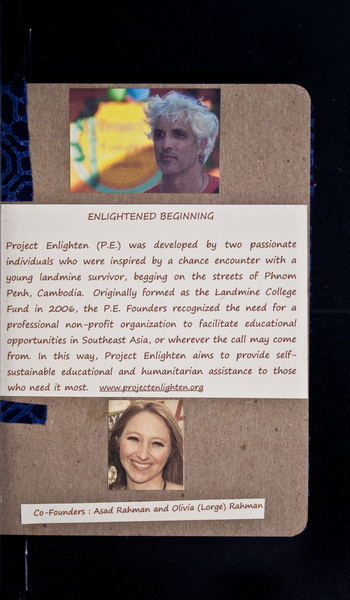 ENLIGHTENED BEGINNING
Project Enlighten (P.E.) was developed by two passionate
individuals who were inspired by a chance encounter with a
young landmine survivor, begging on the streets of Phnom
Penh, Cambodia. Originally formed as the Landmine College
Fund in 2006, the P.E. Founders recognized the need for a
professional non-profit organization to facilitate educational
opportunities in Southeast Asia, or wherever the call may come
from. In this way, Project Enlighten aims to provide self-
sustainable educational and humanitarian assistance to those
who need it most. www.projectenlighten.org
Co-Founders : Asad Rahman and Olivia (Lorge) Rahman